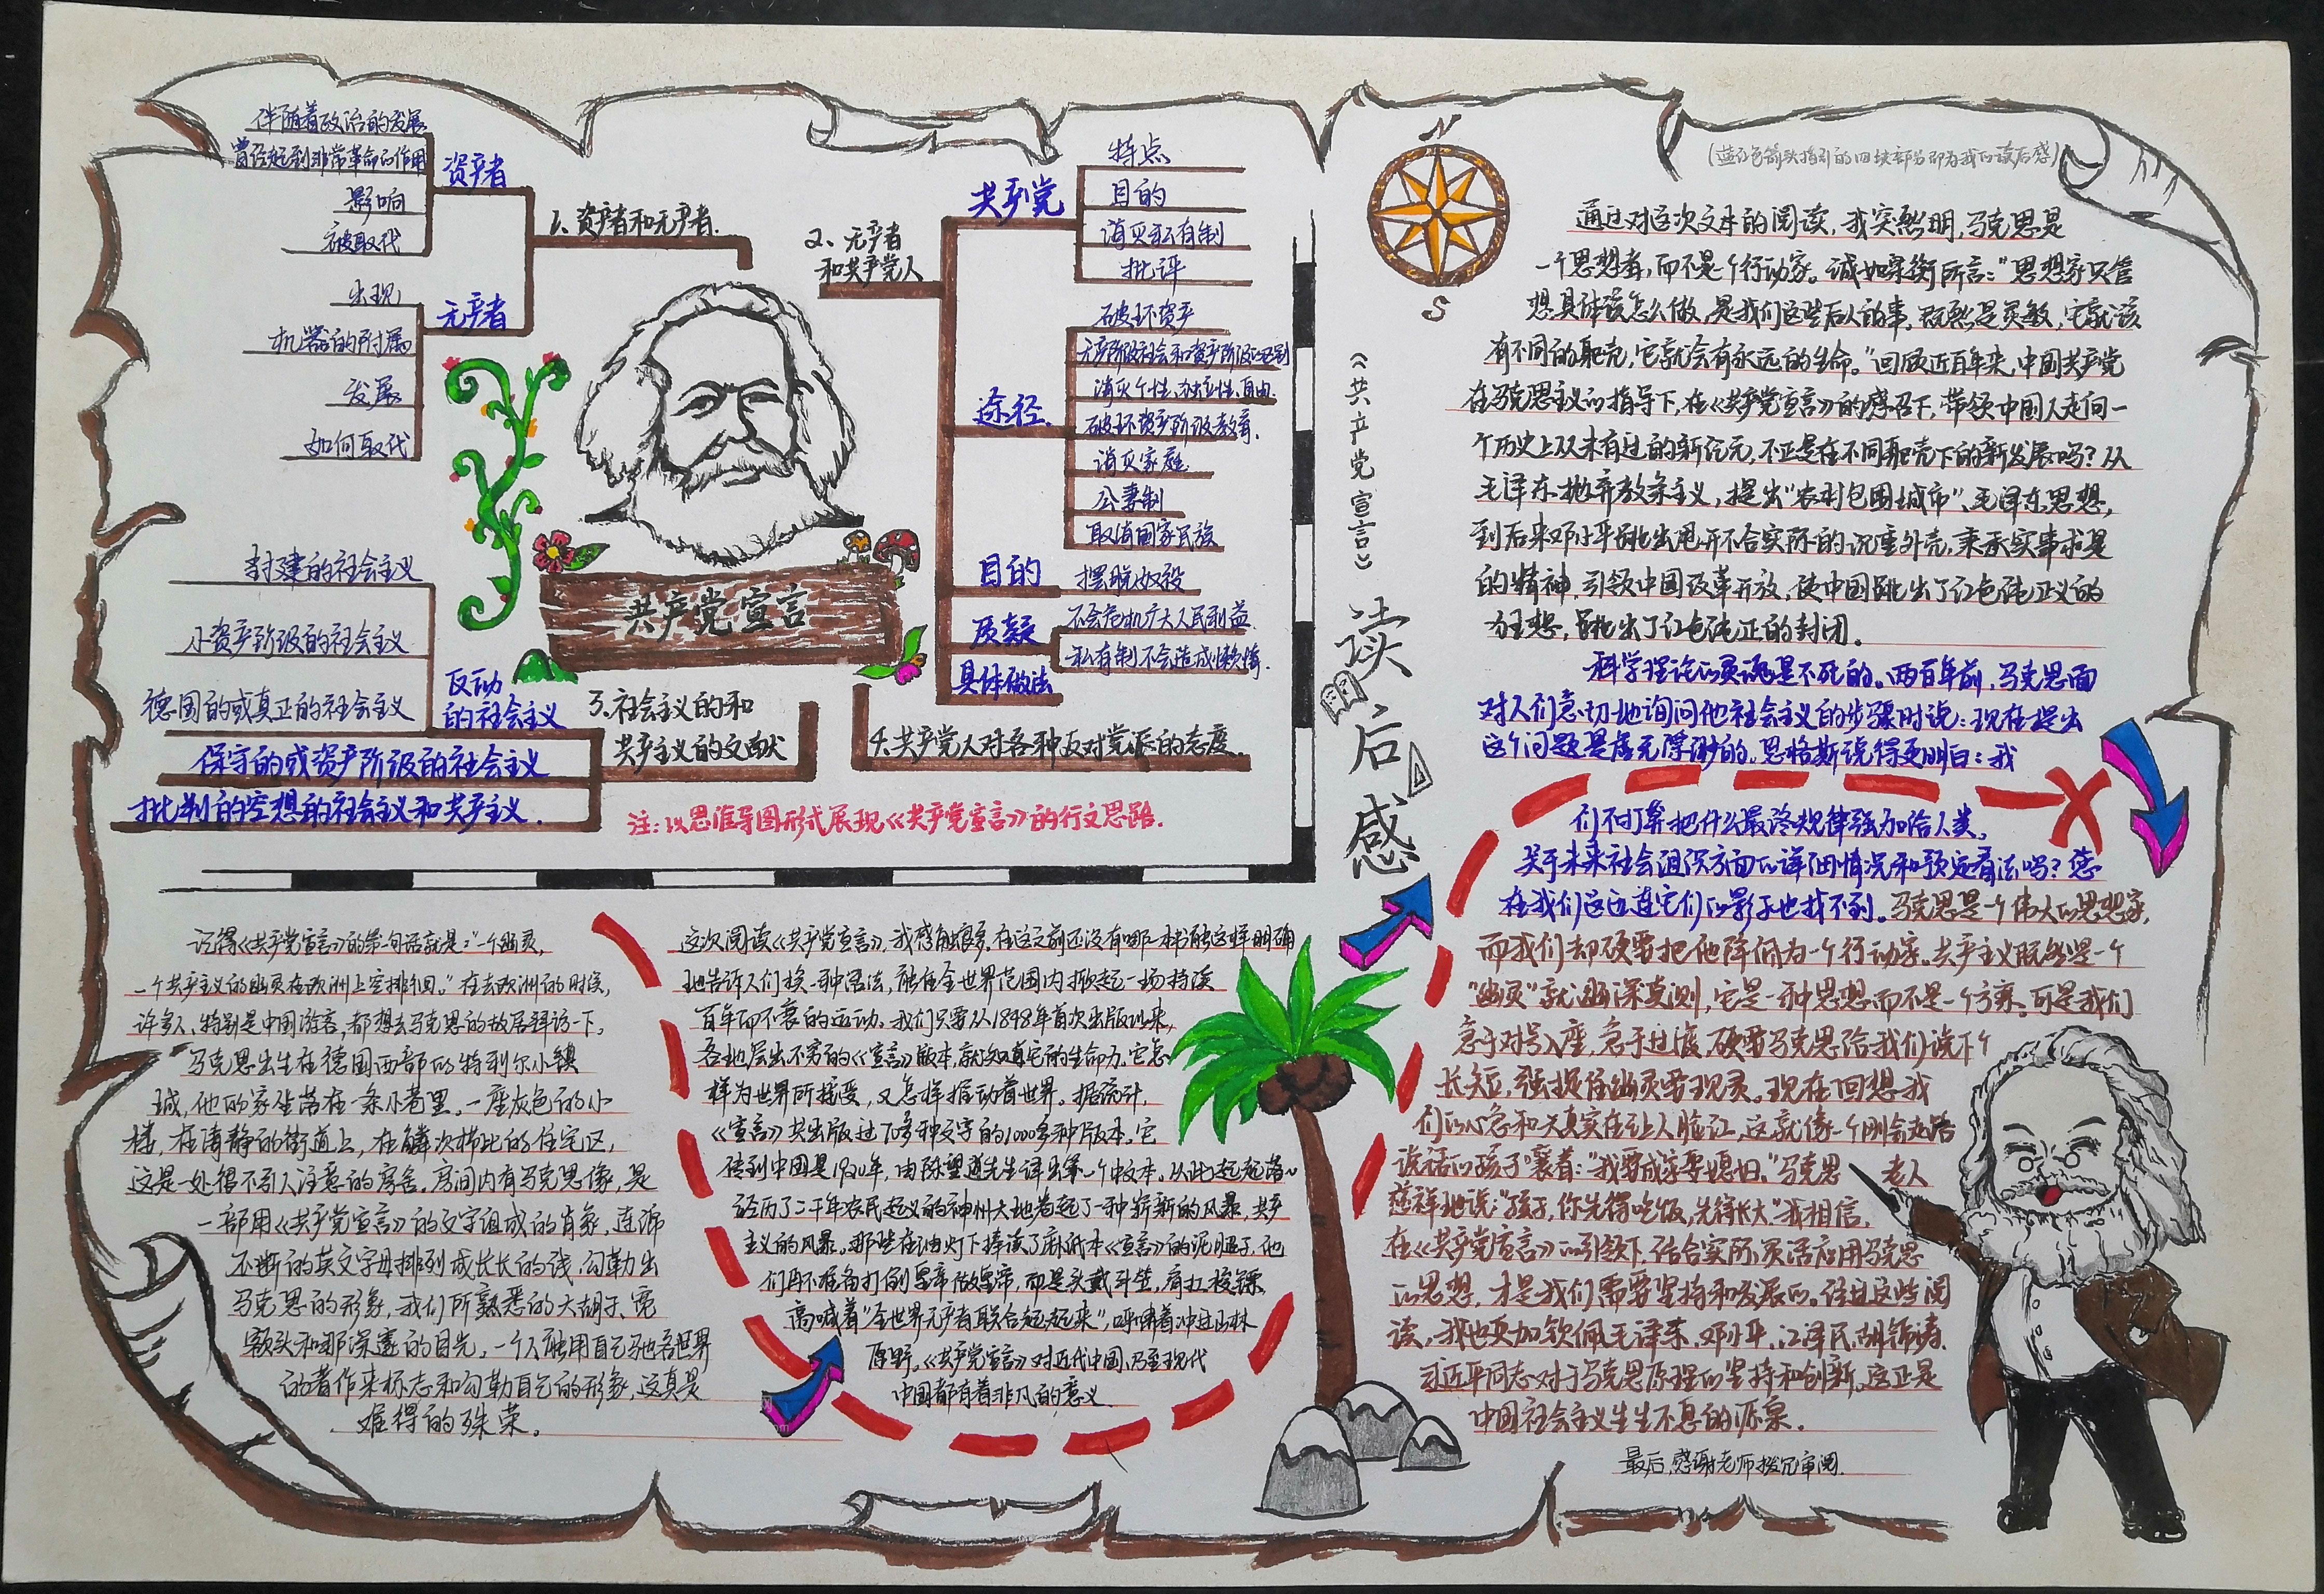 伴随着政治的发展
曾经起到非常革命的作用
影响
被取代
资产者
出现
机器的附属
发展
如何取代
无产者
1、资产者和无产者.
2、无产者
和共产党人
共产党
特点
目的
消灭私有制
批评
途径.
破坏资产
无产阶级社会和资产阶级的区别
消灭个性、独立性、自由.
破坏资产阶级教育.
消灭家庭
公妻制
取消国家民族
目的
摆脱奴役
质疑
不会危机广大人民利益.
私有制不会造成懒惰.
具体做法
共产党宣言
封建的社会主义
小资产阶级的社会主义
德国的或真正的社会主义
反动
的社会主义
保守的或资产阶级的社会主义
批判的空想的社会主义和共产主义.
3、社会主义的和
共产主义的文献
4、共产党人对各种反对党派的态度.
注:以思维导图形式展现《共产党宣言》的行文思路.
N
S
《共产党宣言》
读后感
记得《共产党宣言》的第一句话就是:“一个幽灵,
一个共产主义的幽灵在欧洲上空徘徊。”在去欧洲的时候,
许多人、特别是中国游客,都想去马克思的故居拜访一下。
马克思出生在德国西部的特利尔小镇
城,他的家坐落在一条小巷里。一座灰色的小
楼,在清静的街道上,在鳞次栉比的住宅区,
这是一处很不引人注意的房舍。房间内有马克思像,是
一部用《共产党宣言》的文字组成的肖象,连绵
不断的英文字母排列成长长的线,勾勒出
马克思的形象,我们所熟悉的大胡子、宽
额头和那深邃的目光。一个人能用自己驰名世界
的著作来标志和勾勒自己的形象,这真是
难得的殊荣。
这次阅读《共产党宣言》,我感触很多,在这之前还没有哪一本书能这样明确
地告诉人们换一种活法,能在全世界范围内掀起一场持续
百年而不衰的运动。我们只要从1848年首次出版以来,
各地层出不穷的《宣言》版本,就知道它的生命力,它怎
样为世界所接受,又怎样推动着世界。据统计,
《宣言》共出版过70多种文字的1000多种版本。它
传到中国是1920年,由陈望道先生译出第一个中文本。从此起起落落
经历了二千年农民起义的神州大地卷起了一种崭新的风暴,共产
主义的风暴。那些在油灯下捧读了麻纸本《宣言》的泥腿子,他
们再不准备打倒皇帝做皇帝,而是头戴斗笠,肩扛梭镖,
高喊着“全世界无产者联合起来”,呼啸着冲进山林
原野。《共产党宣言》对近代中国,乃至现代
中国都有着非凡的意义.
通过对这次文本的阅读,我突然明,马克思是
一个思想者,而不是个行动家。诚如梁衡所言:“思想家只管
想,具体该怎么做,是我们这些后人的事,既然是灵敏,它就该
有不同的躯壳,它就会有永远的生命。”回顾近百年来,中国共产党
在马克思主义的指导下,在《共产党宣言》的感召下,带领中国人走向一
个历史上从未有过的新纪元,不正是在不同躯壳下的新发展吗?从
毛泽东抛弃教条主义,提出“农村包围城市”、毛泽东思想,
到后来邓小平跳出甩开不合实际的沉重外壳,秉承实事求是
的精神,引领中国改革开放,使中国跳出了红色纯正义的
狂想,跳出了红色纯正的封闭。
科学理论的灵魂是不死的。两百年前,马克思面
对人们急切地询问他社会主义的步骤时说:现在提出
这个问题是虚无缥缈的。恩格斯说得更明白:我
们不打算把什么最终规律强加给人类,
关于未来社会组织方面的详细情况和预定看法吗?您
在我们这边连它们的影子也找不到。马克思是一个伟大的思想家,
而我们却硬要把他降低为一个行动家。共产主义既然是一个
“幽灵”就幽深莫测,它是一种思想而不是一个方案。可是我们
急于对号入座,急于过渡,硬要马克思给我们说下个
长短,强捉住幽灵要现灵。现在回想我
们的心急和天真实在让人脸红,这就像一个刚会走路
说话的孩子嚷着:“我要成家要媳妇。”马克思老人
慈祥地说:“孩子,你先得吃饭,先得长大。”我相信,
在《共产党宣言》的引领下,结合实际,灵活应用马克思
的思想,才是我们需要坚持和发展的。往且这些阅
读,我也更加钦佩毛泽东、邓小平、江泽民、胡锦涛、
习近平同志对于马克思原理的坚持和创新。这正是
中国社会主义生生不息的源泉.
最后,感谢老师拨冗审阅.